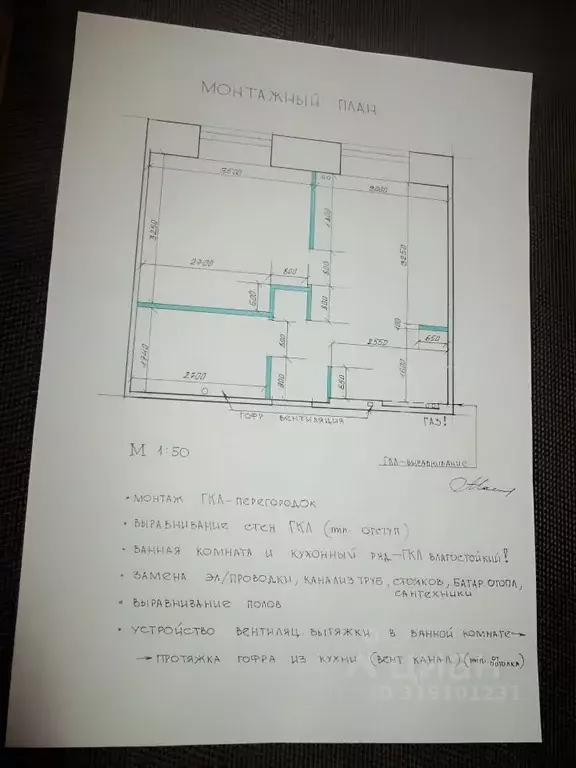 МОНТАЖНЫЙ ПЛАН
3500
60
3000
1400
3250
3250
2700
600
800
600
800
100
650
2550
1740
500
2700
800
650
1600
ГОФР ВЕНТИЛЯЦИЯ
ГАЗ!
М 1:50
ГКЛ-ВЫРАВНИВАНИЕ
• МОНТАЖ ГКЛ-ПЕРЕГОРОДОК
• ВЫРАВНИВАНИЕ СТЕН ГКЛ (min. ОТСТУП)
• ВАННАЯ КОМНАТА И КУХОННЫЙ РЯД-ГКЛ ВЛАГОСТОЙКИЙ!
• ЗАМЕНА ЭЛ/ПРОВОДКИ, КАНАЛИЗ ТРУБ, СТОЯКОВ, БАТАР. ОТОПЛ,
САНТЕХНИКИ
• ВЫРАВНИВАНИЕ ПОЛОВ
• УСТРОЙСТВО ВЕНТИЛЯЦ. ВЫТЯЖКИ В ВАННОЙ КОМНАТЕ→
→ ПРОТЯЖКА ГОФРА ИЗ КУХНИ (ВЕНТ КАНАЛ) (min. ОТ ПОТОЛКА)
циан
ID 319101231